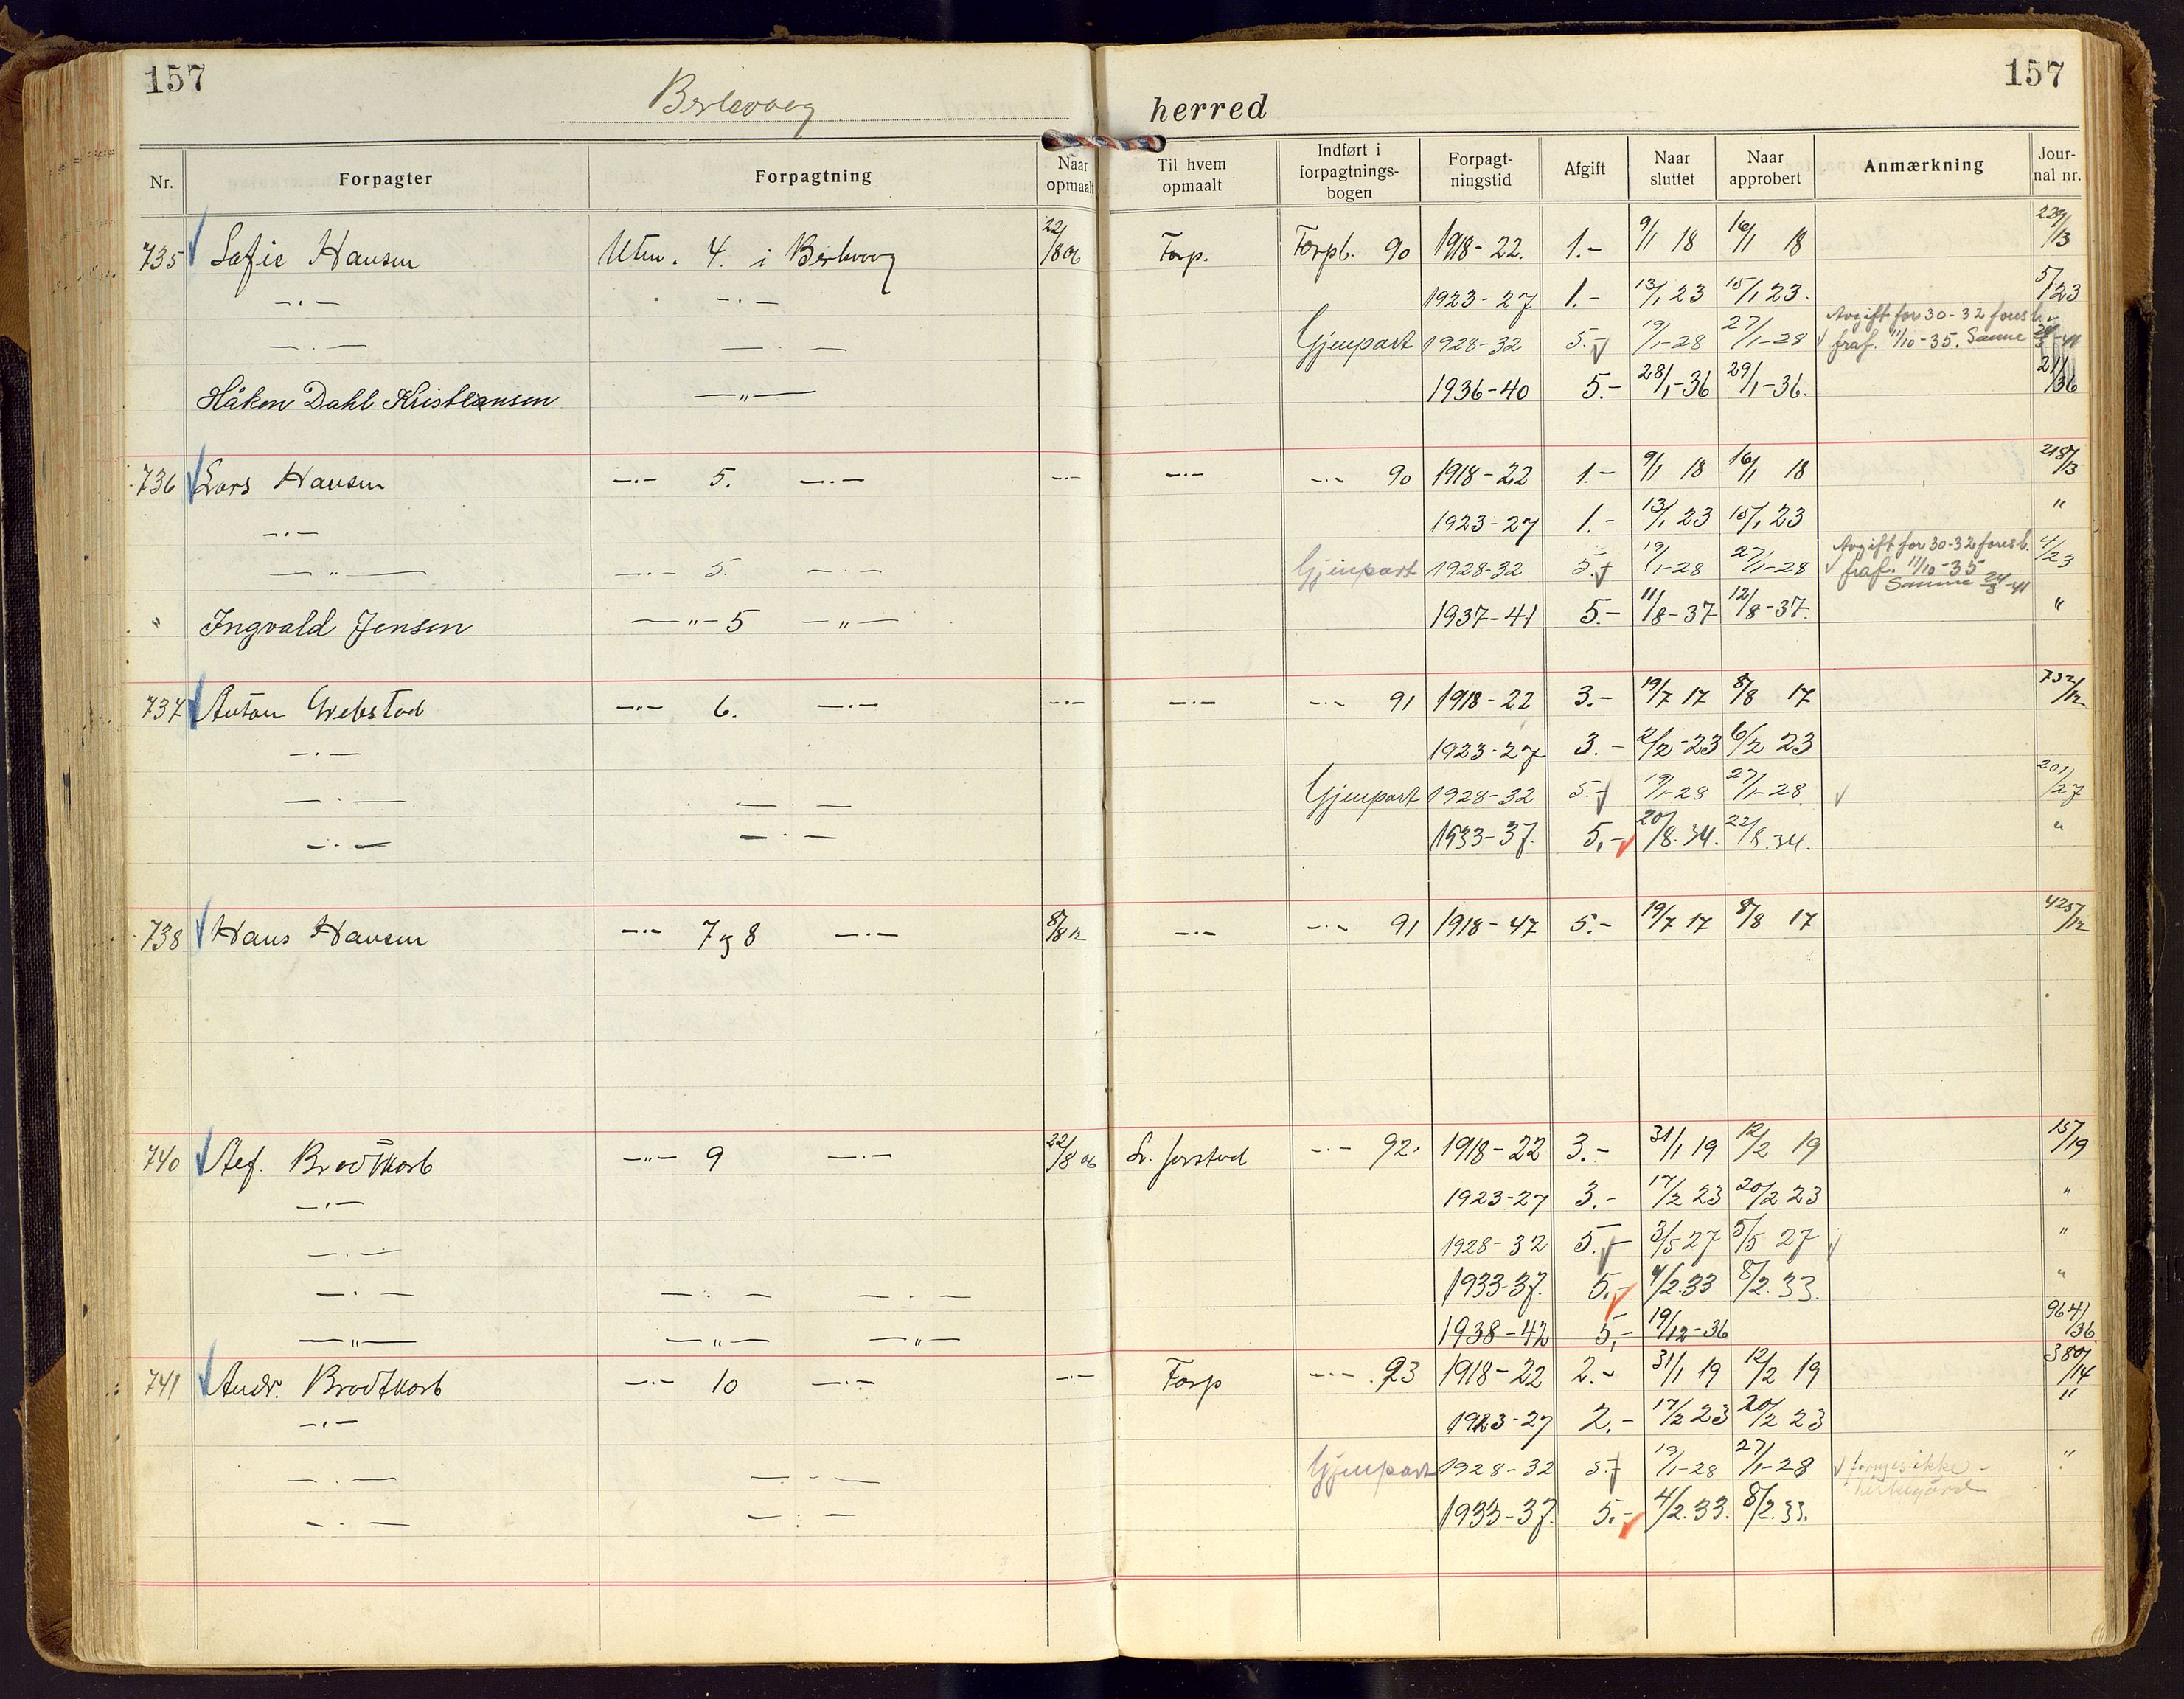 157 Berlevaag herred 157
Nr. Forpagter Forpagtning Naar opmaalt Til hvem opmaalt Indført i forpagtnings-bogen Forpagt-ningstid Afgift Naar sluttet Naar approbert Anmærkning Jour-nal nr.
735 Sofie Hansen Utm. 4. i Berlevaag 22/8 06 Forp. Forpb. 90 1918-22. 1.- 9/1 18 16/1 18 229/13
-"- -"- 1923-27 1.- 13/1 23 15/1 23. 5/23
-"- -"- Gjenpart 1928-32 5.- 19/1-28 27/1-28 Avgift for 30-32 foresl. fraf. 11/10-35. Samme 24/3-41
Håkon Dahl Kristiansen -"- 1936-40 5.- 28/1-36 29/1-36. 21/36
736 Lars Hansen -"- 5. -"- -"- -"- -"- 90 1918-22 1.- 9/1 18 16/1 18 218/13
-"- 1923-27 1.- 13/1 23 15/1 23 "
-"- -"- 5. -"- Gjenpart 1928-32 5.- 19/1-28 27/1-28 Avgift for 30-32 foresl. fraf. 11/10-35 Samme 24/3-41 4/23
" Ingvald Jensen -"- 5 -"- 1937-41 5.- 11/8-37 12/8-37. "
737 Anton Grebstad -"- 6. -"- -"- -"- -"- 91 1918-22 3.- 19/7 17 8/8 17 732/12
-"- 1923-27 3.- 2/2-23 6/2 23
-"- -"- Gjenpart 1928-32 5.- 19/1-28 27/1-28. 201/27
-"- -"- 1933-37. 5,- 20/8.34. 22/8.34. "
738 Hans Hansen -"- 7 og 8 -"- 8/8 12 -"- -"- 91 1918-47 5.- 19/7 17 8/8 17 425/12
740 Alf. Brodtkorb -"- 9 -"- 22/8 06 -"- 92. 1918-22 3.- 31/1 19 12/2 19 157/19
-"- 1923-27 3.- 17/2 23 20/2 23 "
-"- 1928-32 5.- 3/5 27 5/5 27 "
-"- -"- -"- 1933-37. 5,- 4/2.33 8/2.33. "
-"- -"- -"- 1938-42 5,- 19/12-36 964/36
741 Andr. Brodtkorb -"- 10 -"- -"- Forp -"- 93 1918-22 2.- 31/1 19 12/2 19 380/14
-"- 1923-27 2.- 17/2 23 20/2 23 "
-"- -"- Gjenpart 1928-32 5.- 19/1-28 27/1-28 fornyes ikke - "
-"- -"- 1933-37. 5,- 4/2.33. 8/2.33.